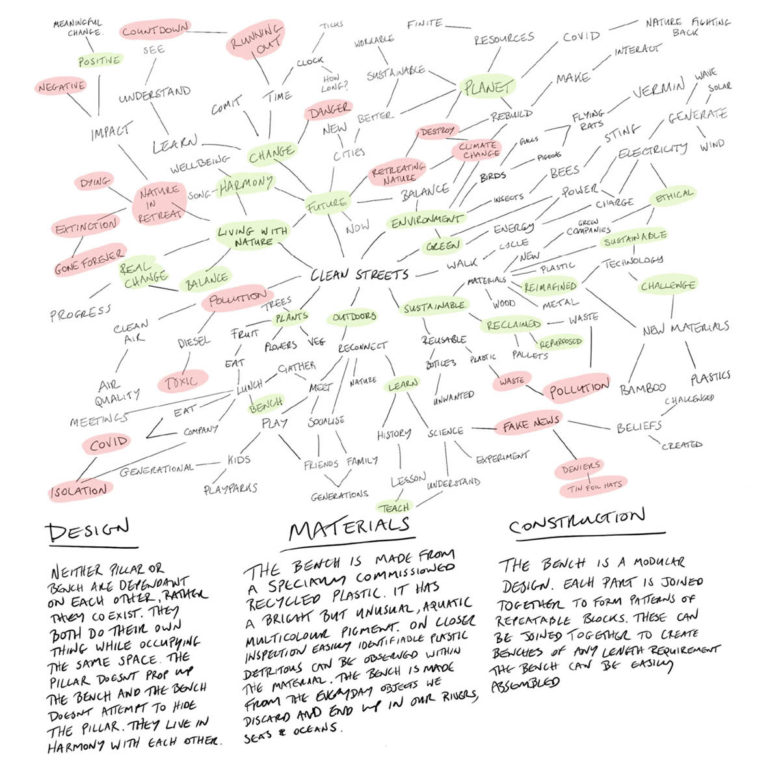 MEANINGFUL CHANGE
COUNTDOWN
RUNNING OUT
TICKS
FINITE
NATURE FIGHTING BACK
POSITIVE
SEE
CLOCK
WORKABLE
RESOURCES
COVID
INTERACT
NEGATIVE
UNDERSTAND
COMIT
TIME
HOW LONG?
SUSTAINABLE
PLANET
MAKE
VERMIN
WAVE
SOLAR
IMPACT
LEARN
DANGER
NEW
BETTER
REBUILD
FLYING RATS
GENERATE
WELLBEING
CHANGE
CITIES
DESTROY
CLIMATE CHANGE
GULLS
PIGEONS
STING
ELECTRICITY
WIND
DYING
NATURE IN RETREAT
SONG
HARMONY
RETREATING NATURE
BIRDS
BEES
EXTINCTION
FUTURE
BALANCE
INSECTS
POWER
CHARGE
ETHICAL
LIVING WITH NATURE
NOW
ENVIRONMENT
ENERGY
GREW COMPANIES
GONE FOREVER
GREEN
CYCLE
SUSTAINABLE
REAL CHANGE
BALANCE
CLEAN STREETS
WALK
NEW
PLASTIC
TECHNOLOGY
MATERIALS
REIMAGINED
CHALLENGE
PROGRESS
POLLUTION
TREES
PLANTS
OUTDOORS
SUSTAINABLE
WOOD
METAL
CLEAN AIR
DIESEL
FRUIT
FLOWERS
VEG
RECONNECT
REUSABLE
RECLAIMED
WASTE
REPURPOSED
NEW MATERIALS
EAT
GATHER
BOTTLES
PLASTIC
PALLETS
AIR QUALITY
TOXIC
LUNCH
MEET
NATURE
LEARN
UNWANTED
WASTE
POLLUTION
BAMBOO
PLASTICS
MEETINGS
EAT
BENCH
CHALLENGED
COVID
COMPANY
PLAY
SOCALISE
HISTORY
SCIENCE
FAKE NEWS
BELIEFS
CREATED
GENERATIONAL
KIDS
FRIENDS
FAMILY
EXPERIMENT
DENIERS
ISOLATION
PLAYPARKS
GENERATIONS
LESSON
UNDERSTAND
TIN FOIL HATS
TEACH
DESIGN
NEITHER PILLAR OR
BENCH ARE DEPENDANT
ON EACH OTHER, RATHER
THEY CO EXIST. THEY
BOTH DO THEIR OWN
THING WHILE OCCUPYING
THE SAME SPACE. THE
PILLAR DOESNT PROP UP
THE BENCH AND THE BENCH
DOESNT ATTEMPT TO HIDE
THE PILLAR. THEY LIVE IN
HARMONY WITH EACH OTHER.
MATERIALS
THE BENCH IS MADE FROM
A SPECIALLY COMMISSIONED
RECYCLED PLASTIC. IT HAS
A BRIGHT BUT UNUSUAL, AQUATIC
MULTICOLOUR PIGMENT. ON CLOSER
INSPECTION EASILY IDENTIFIABLE PLASTIC
DETRITOUS CAN BE OBSERVED WITHIN
THE MATERIAL. THE BENCH IS MADE
FROM THE EVERYDAY OBJECTS WE
DISCARD AND END UP IN OUR RIVERS,
SEAS & OCEANS.
CONSTRUCTION
THE BENCH IS A MODULAR
DESIGN. EACH PART IS JOINED
TOGETHER TO FORM PATTERNS OF
REPEATABLE BLOCKS. THESE CAN
BE JOINED TOGETHER TO CREATE
BENCHES OF ANY LENGTH REQUIREMENT
THE BENCH CAN BE EASILY
ASSEMBLED